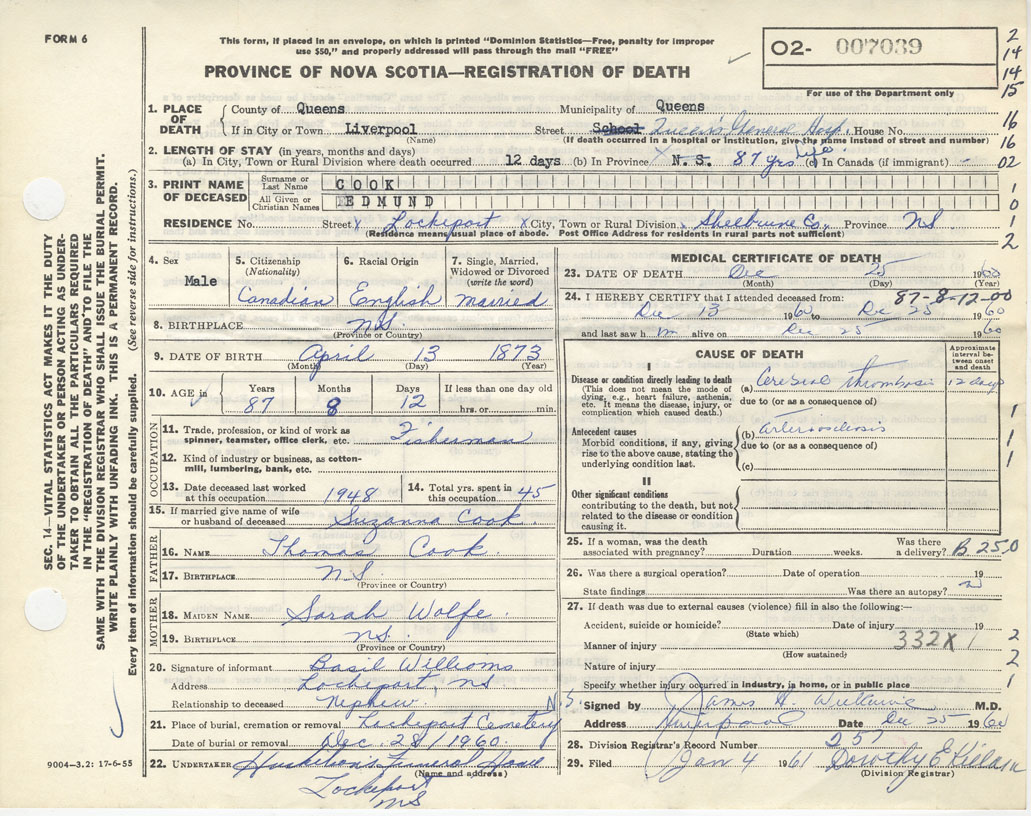 FORM 6
This form, if placed in an envelope, on which is printed "Dominion Statistics—Free, penalty for improper
use $50," and properly addressed will pass through the mail "FREE"
O2- 007039
For use of the Department only
PROVINCE OF NOVA SCOTIA—REGISTRATION OF DEATH
2
14
14
15
16
16
02
1
0
1
2
1. PLACE OF DEATH
County of Queens Municipality of Queens
If in City or Town Liverpool Street School Queen's General Hosp. House No.
(Name) (If death occurred in a hospital or institution, give the name instead of street and number)
2. LENGTH OF STAY (in years, months and days)
(a) In City, Town or Rural Division where death occurred 12 days (b) In Province N. S. 87 yrs life (c) In Canada (if immigrant) -
3. PRINT NAME OF DECEASED
Surname or Last Name COOK
All Given or Christian Names EDMUND
RESIDENCE No. Street x Lockeport x City, Town or Rural Division Shelburne Co. Province NS
(Residence means usual place of abode. Post Office Address for residents in rural parts not sufficient)
4. Sex
Male
5. Citizenship
(Nationality)
Canadian
6. Racial Origin
English
7. Single, Married,
Widowed or Divorced
(write the word)
married
8. BIRTHPLACE N.S.
(Province or Country)
9. DATE OF BIRTH April 13 1873
(Month) (Day) (Year)
10. AGE in
Years Months Days If less than one day old
87 8 12 hrs. or min.
OCCUPATION
11. Trade, profession, or kind of work as
spinner, teamster, office clerk, etc. Fisherman
12. Kind of industry or business, as cotton-
mill, lumbering, bank, etc.
13. Date deceased last worked
at this occupation 1948
14. Total yrs. spent in
this occupation 45
15. If married give name of wife
or husband of deceased Suzanna Cook
FATHER
16. NAME Thomas Cook
17. BIRTHPLACE N.S.
(Province or Country)
MOTHER
18. MAIDEN NAME Sarah Wolfe
19. BIRTHPLACE N.S.
(Province or Country)
20. Signature of informant Basil Williams
Address Lockeport, NS
Relationship to deceased Nephew N.S.
21. Place of burial, cremation or removal Lockeport Cemetery
Date of burial or removal Dec. 28/1960
22. UNDERTAKER Huskilson's Funeral Home
(Name and address)
Lockeport
NS
MEDICAL CERTIFICATE OF DEATH
23. DATE OF DEATH Dec 25 1960
(Month) (Day)
87-8-12-00
24. I HEREBY CERTIFY that I attended deceased from:
Dec 13 1960 to Dec 25 1960
and last saw h m alive on Dec 25 1960
CAUSE OF DEATH
Approximate interval between onset and death
I
Disease or condition directly leading to death
(This does not mean the mode of
dying, e.g., heart failure, asthenia,
etc. It means the disease, injury, or
complication which caused death.)
(a) Cerebral thrombosis 12 days
due to (or as a consequence of)
1
Antecedent causes
Morbid conditions, if any, giving
rise to the above cause, stating the
underlying condition last.
(b) Arteriosclerosis
due to (or as a consequence of)
(c)
1
1
II
Other significant conditions
contributing to the death, but not
related to the disease or condition
causing it.
25. If a woman, was the death
associated with pregnancy? Duration weeks. Was there
a delivery? B. 25.0
26. Was there a surgical operation? Date of operation 19
State findings Was there an autopsy?
27. If death was due to external causes (violence) fill in also the following:—
Accident, suicide or homicide? Date of injury 19
(State which)
332X 1
2
2
1
Manner of injury
(How sustained)
Nature of injury
Specify whether injury occurred in industry, in home, or in public place
Signed by James H. Williams M.D.
Address Liverpool Date Dec 25 1960
28. Division Registrar's Record Number 257
29. Filed Jan 4 1961 Dorothy E Killam
(Division Registrar)
SEC. 14—VITAL STATISTICS ACT MAKES IT THE DUTY
OF THE UNDERTAKER OR PERSON ACTING AS UNDER-
TAKER TO OBTAIN ALL THE PARTICULARS REQUIRED
IN THE "REGISTRATION OF DEATH" AND TO FILE THE
SAME WITH THE DIVISION REGISTRAR WHO SHALL ISSUE THE BURIAL PERMIT.
WRITE PLAINLY WITH UNFADING INK. THIS IS A PERMANENT RECORD.
Every item of information should be carefully supplied. (See reverse side for instructions.)
9004—3.2: 17-6-55